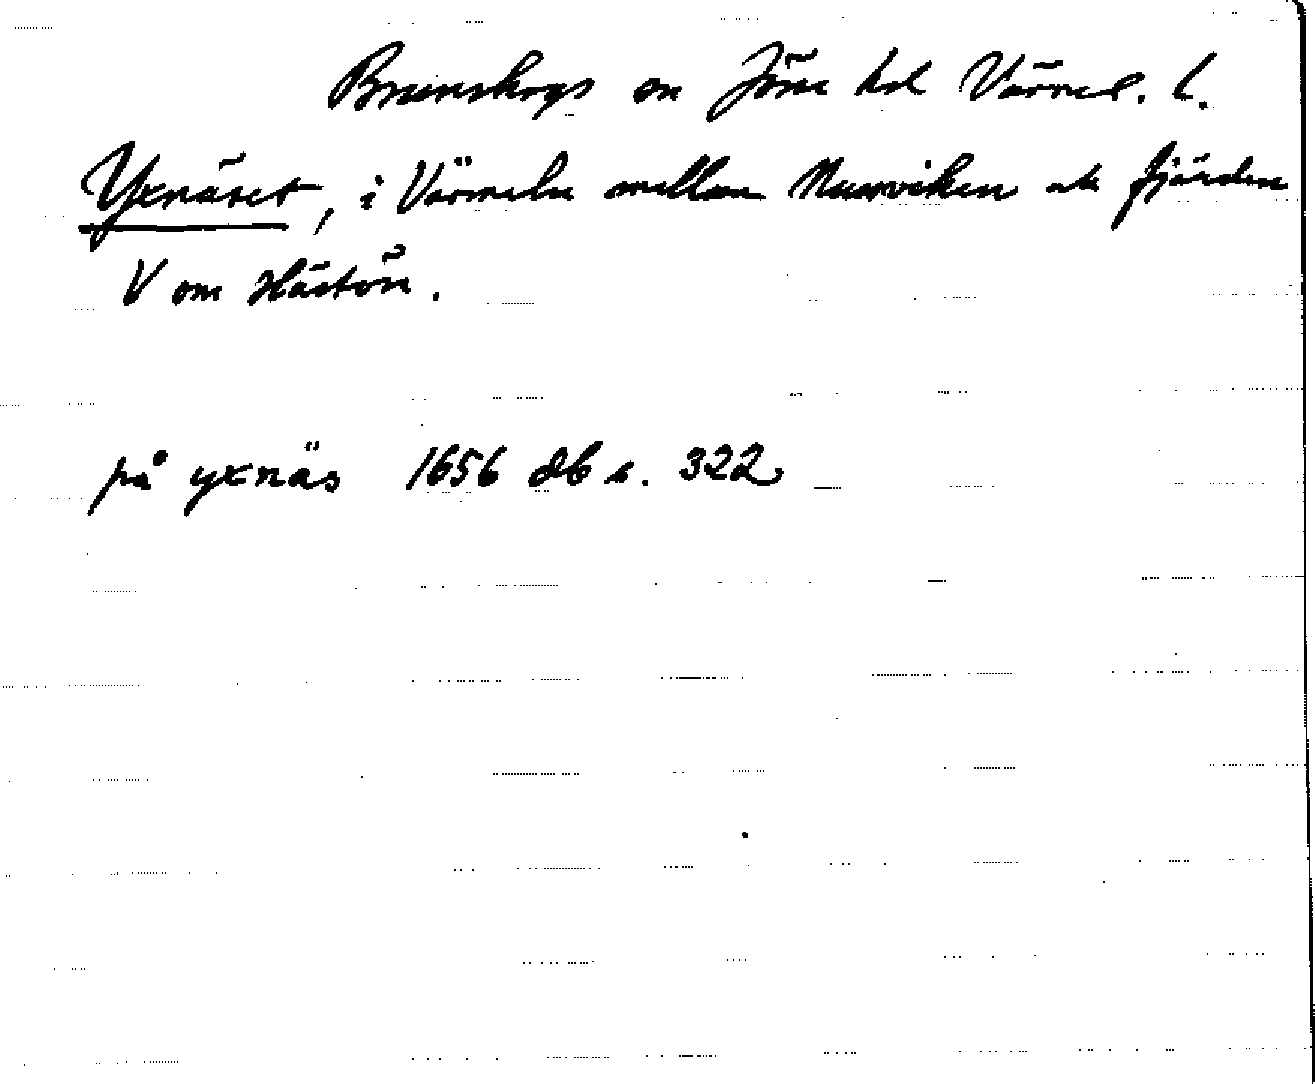 Brunskogs sn Jösse hd Värmel. l.
Yxnäset, i Värmeln mellan Nusviken och fjärden
V om Hästön.
på yxnäs 1656 db s. 322